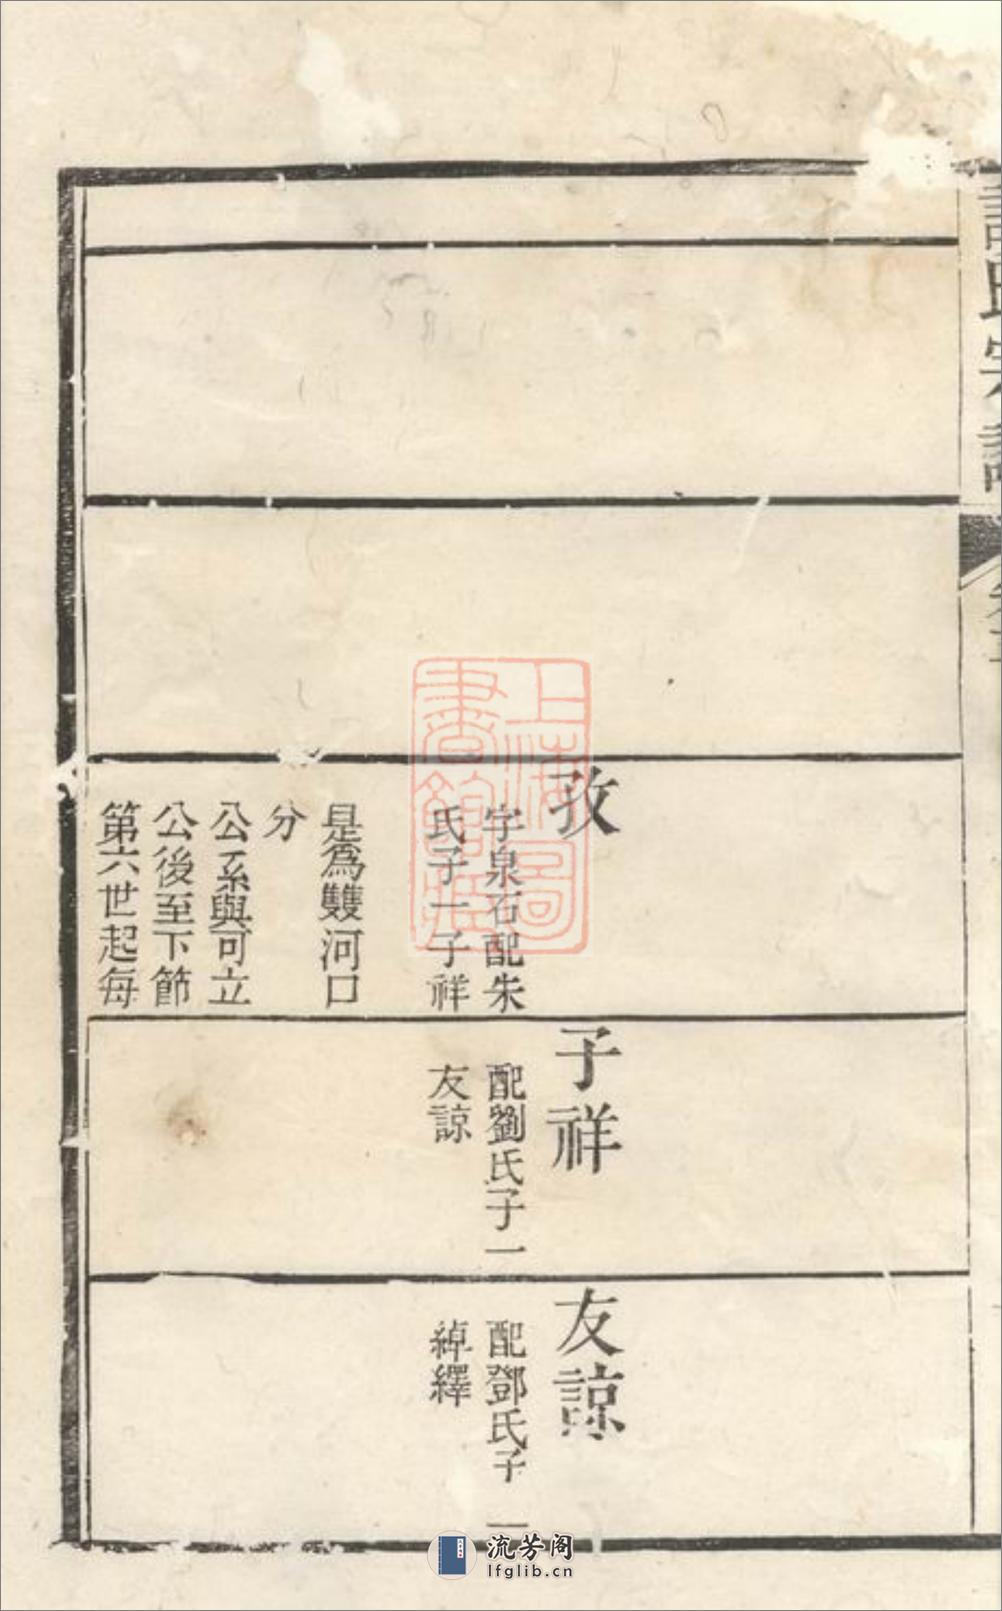 氏宗譜
孜
字泉石配朱
氏子一子祥
是為雙河口
分
公系與可立
公後至下節
第六世起每
子祥
配劉氏子一
友諒
友諒
配鄧氏子一
綽繹
上海圖
書館藏
流芳阁
lfglib.cn